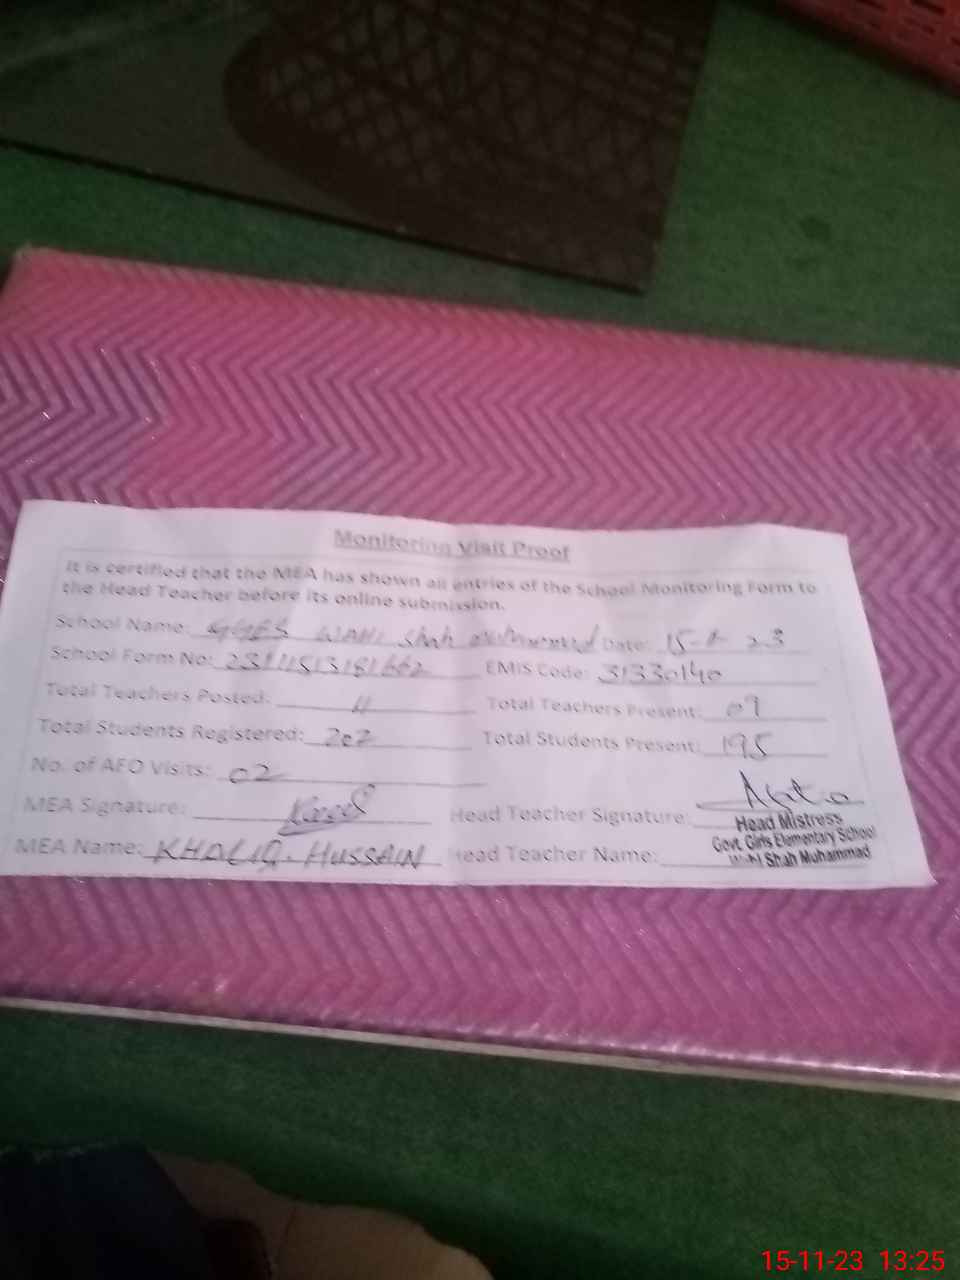 Monitoring Visit Proof
It is certified that the MEA has shown all entries of the School Monitoring Form to
the Head Teacher before its online submission.
School Name: GGES WAHI Shah Muhammad Date: 15-11-23
School Form No: EMIS Code: 31330140
Total Teachers Posted: 11 Total Teachers Present: 09
Total Students Registered: 202 Total Students Present: 195
No. of AEO Visits: 02
MEA Signature: Head Teacher Signature:
Head Mistress
Govt. Girls Elementary School
MEA Name: KHALIQ. HUSSAIN Head Teacher Name: Wahi Shah Muhammad
15-11-23 13:25